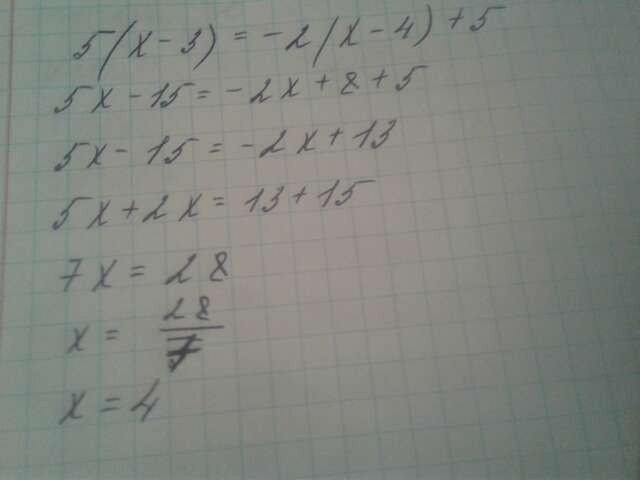 5(x-3)=-2(x-4)+5
5x-15=-2x+8+5
5x-15=-2x+13
5x+2x=13+15
7x=28
x=28/7
x=4